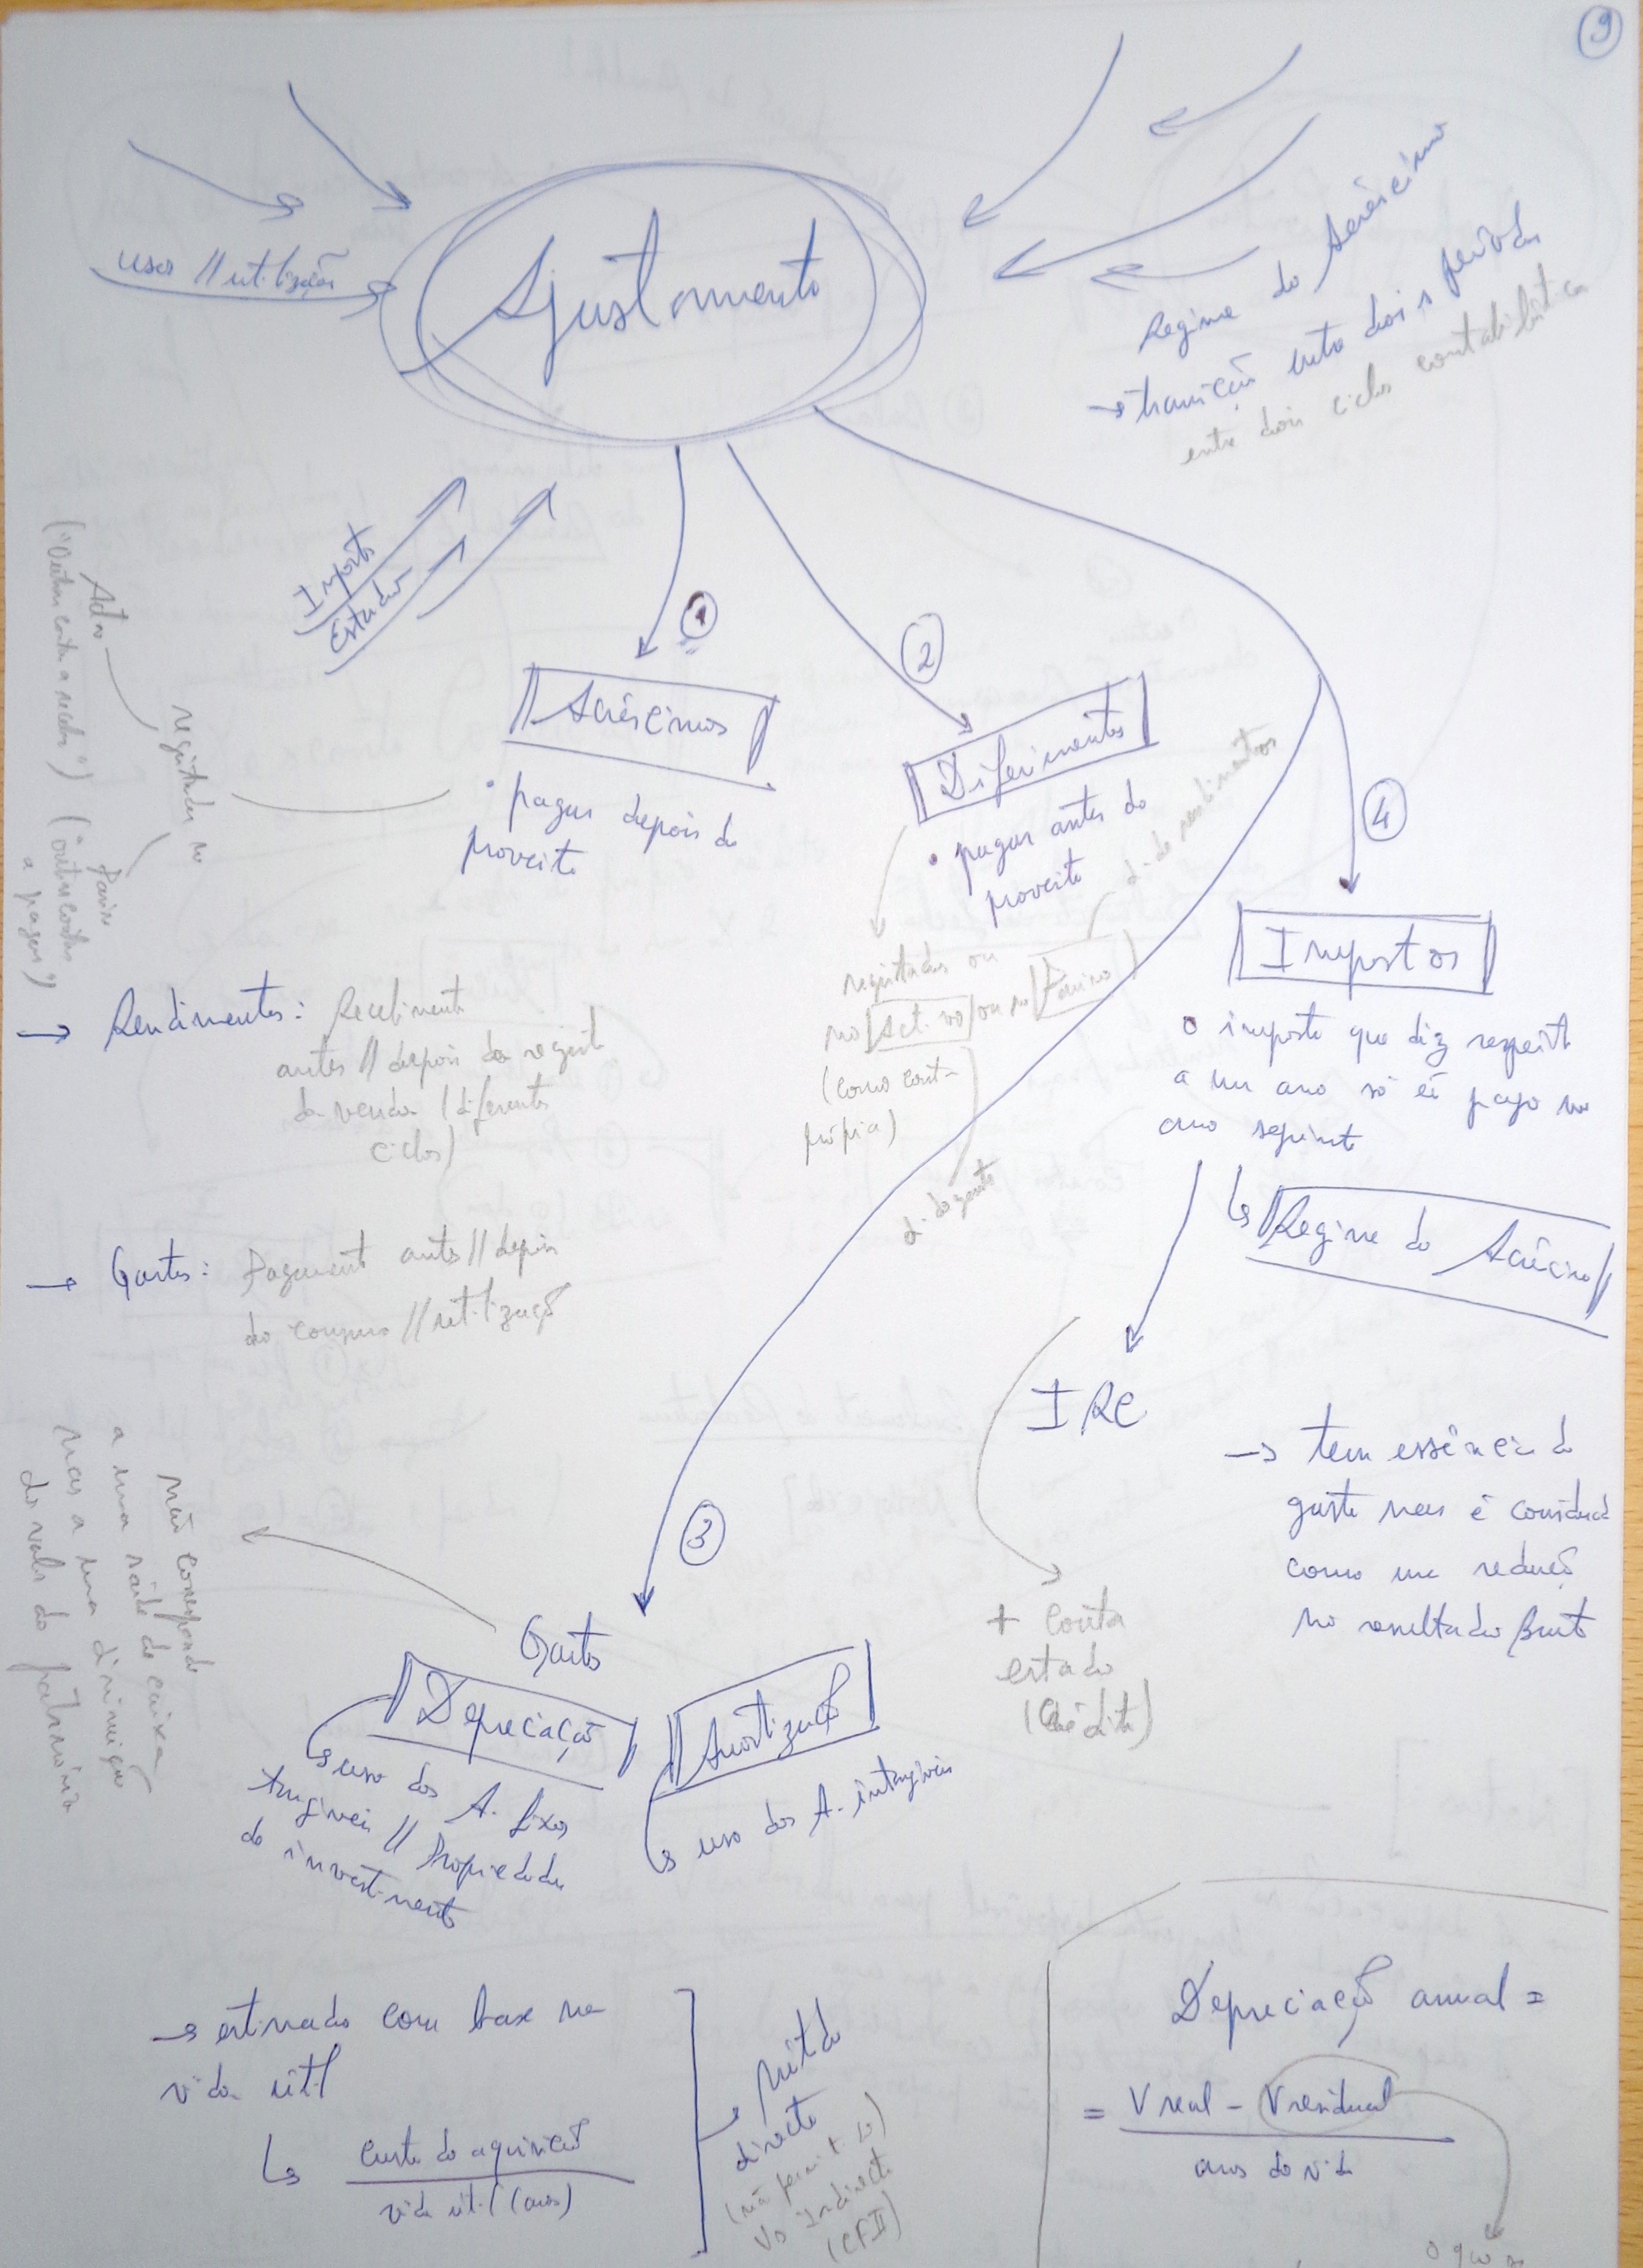 9
Ajustamento
uso // utilização
Regime do Acréscimo
→ transição entre dois períodos
entre dois ciclos contabilísticos
Imposto
Estado
1
Acréscimos
• pagar depois do
proveito
registados no
Activo
("Outras contas a receber")
Passivo
("outras contas
a pagar")
2
Diferimentos
• pagar antes do
proveito
d. de rendimentos
registados ou
no Activo / ou no Passivo
(como conta
própria)
d. de gasto
4
Impostos
o imposto que diz respeito
a um ano só é pago no
ano seguinte
Regime do Acréscimo
IRC
→ tem essência de
gasto mas é considerado
como uma redução
no resultado Bruto
+ conta
estado
(Crédito)
→ Rendimentos: Recebimento
antes // depois do registo
da venda (diferentes
ciclos)
→ Gastos: Pagamento antes // depois
do consumo // utilização
3
Gasto
não corresponde
a uma saída de caixa
mas a uma diminuição
do valor do património
Depreciação
uso dos A. fixos
tangíveis // Propriedades
de investimento
Amortização
uso dos A. intangíveis
→ estimado com base na
vida útil
custo de aquisição
vida útil (anos)
Método
directo
Vs Indirecto
(CFII)
Depreciação anual =
= V real - V residual
anos de vida
o que